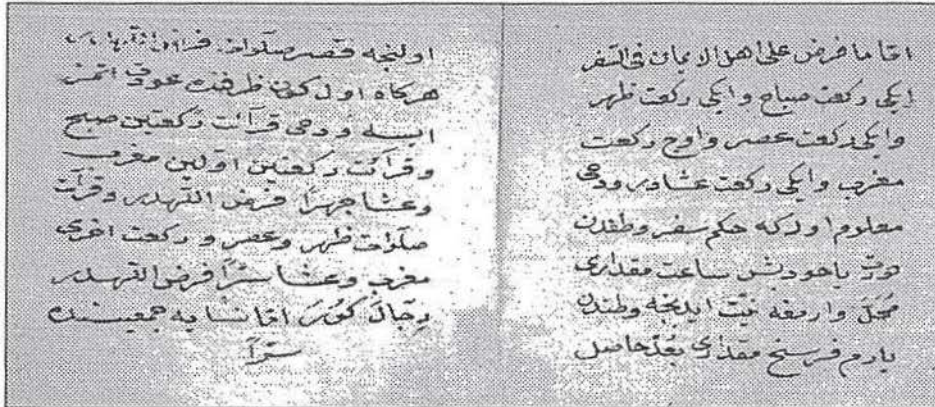 اما ما فرض على اهل الايمان فى السفر
ايكى ركعت صباح و ايكى ركعت ظهر
و ايكى ركعت عصر و اوج ركعت
مغرب و ايكى ركعت عشادر ودخى
معلوم اوله كه حكم سفر وطندن
دورت ياخود بش ساعت مقدارى
محل وارمغه نيت ايدنجه وطندن
يارم فرسخ مقدارى بعد حاصل
اولنجه قصر صلوات
هركاه اول كون ظرفنده عودت اتمز
ايسه ودخى قرآئت ركعتين صبح
وقرآئت ركعتين اولين مغرب
وعشا جهرًا فرض اللهدر وقرآئت
صلوات ظهر وعصر و ركعت اخرى
مغرب وعشا سرًا فرض اللهدر
رجال اما نسايه جمعيسنده
سرًا